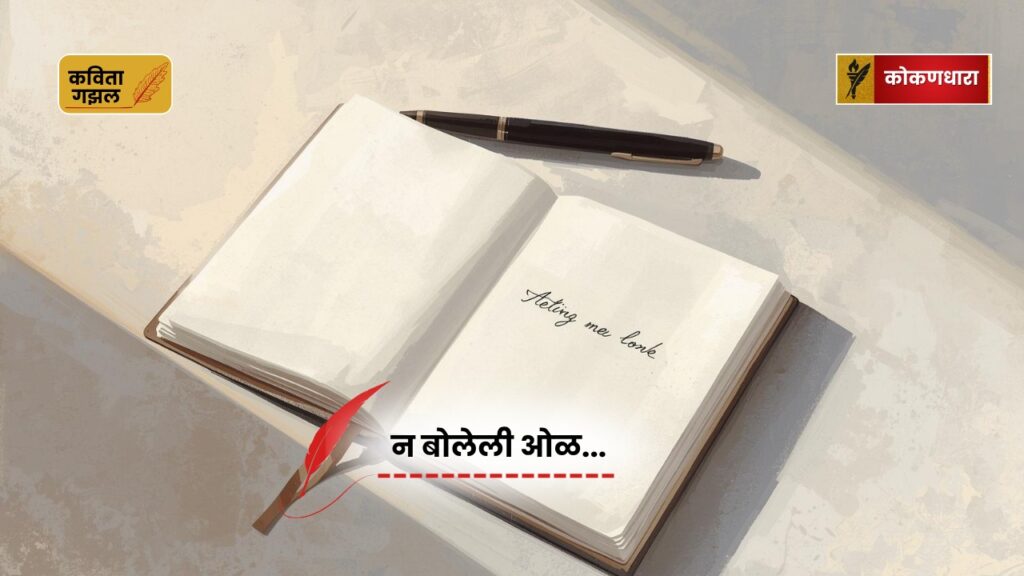 कविता
गझल
कोकणधारा
Acting me lonk
न बोलेली ओळ...